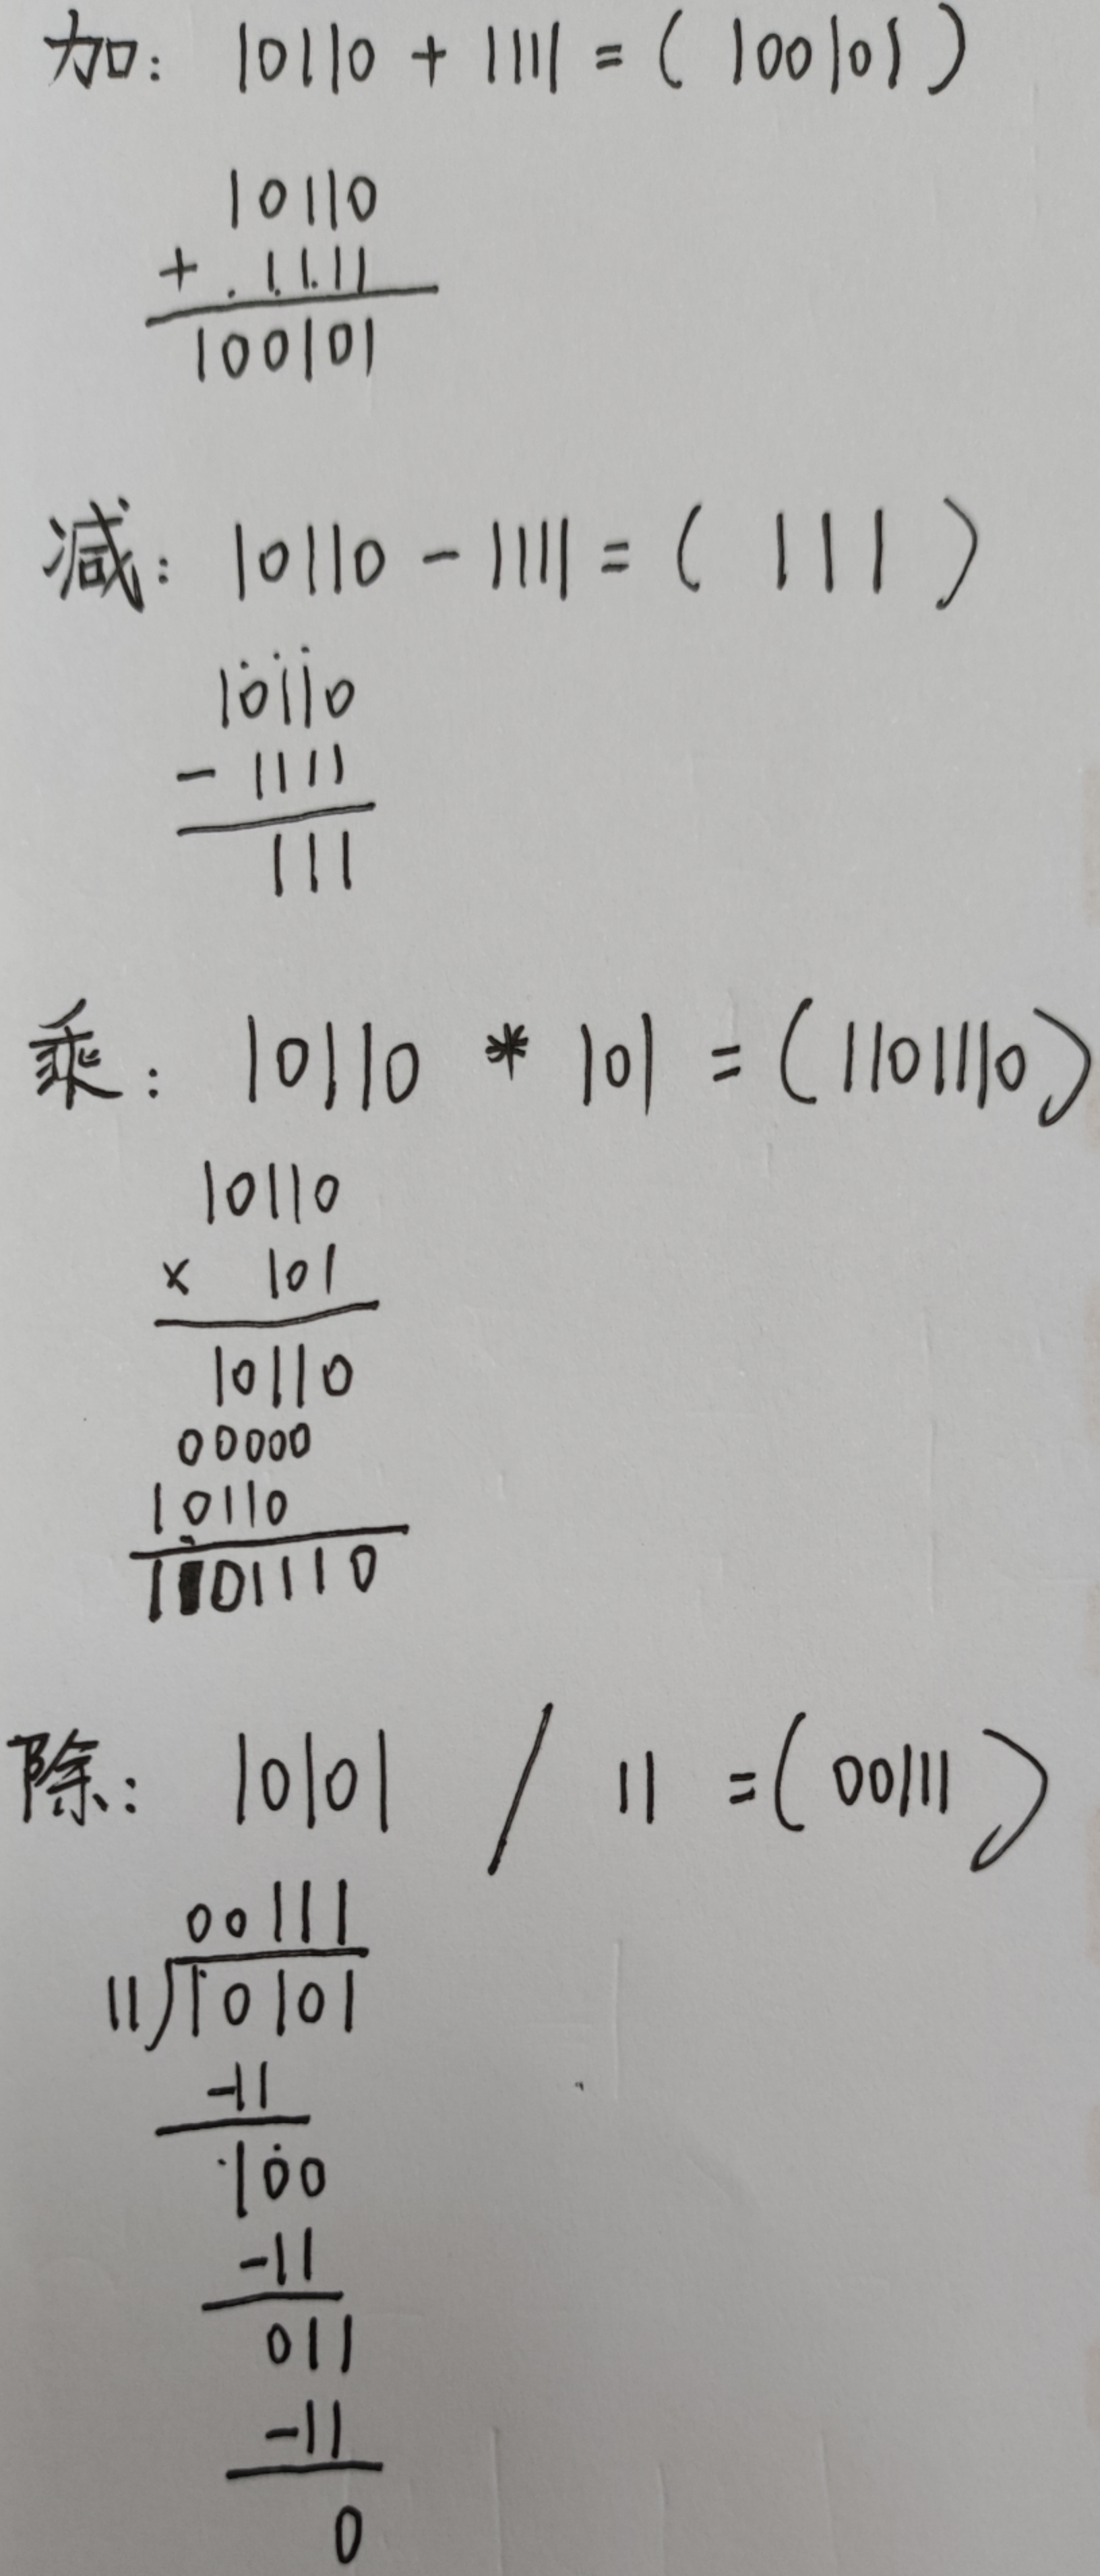 加: 10110 + 1111 = ( 100101 )
10110
+ 1111
100101
减: 10110 - 1111 = ( 111 )
10110
- 1111
111
乘: 10110 * 101 = (1101110)
10110
x 101
10110
00000
10110
1101110
除: 10101 / 11 = (00111)
00111
11)10101
-11
100
-11
011
-11
0